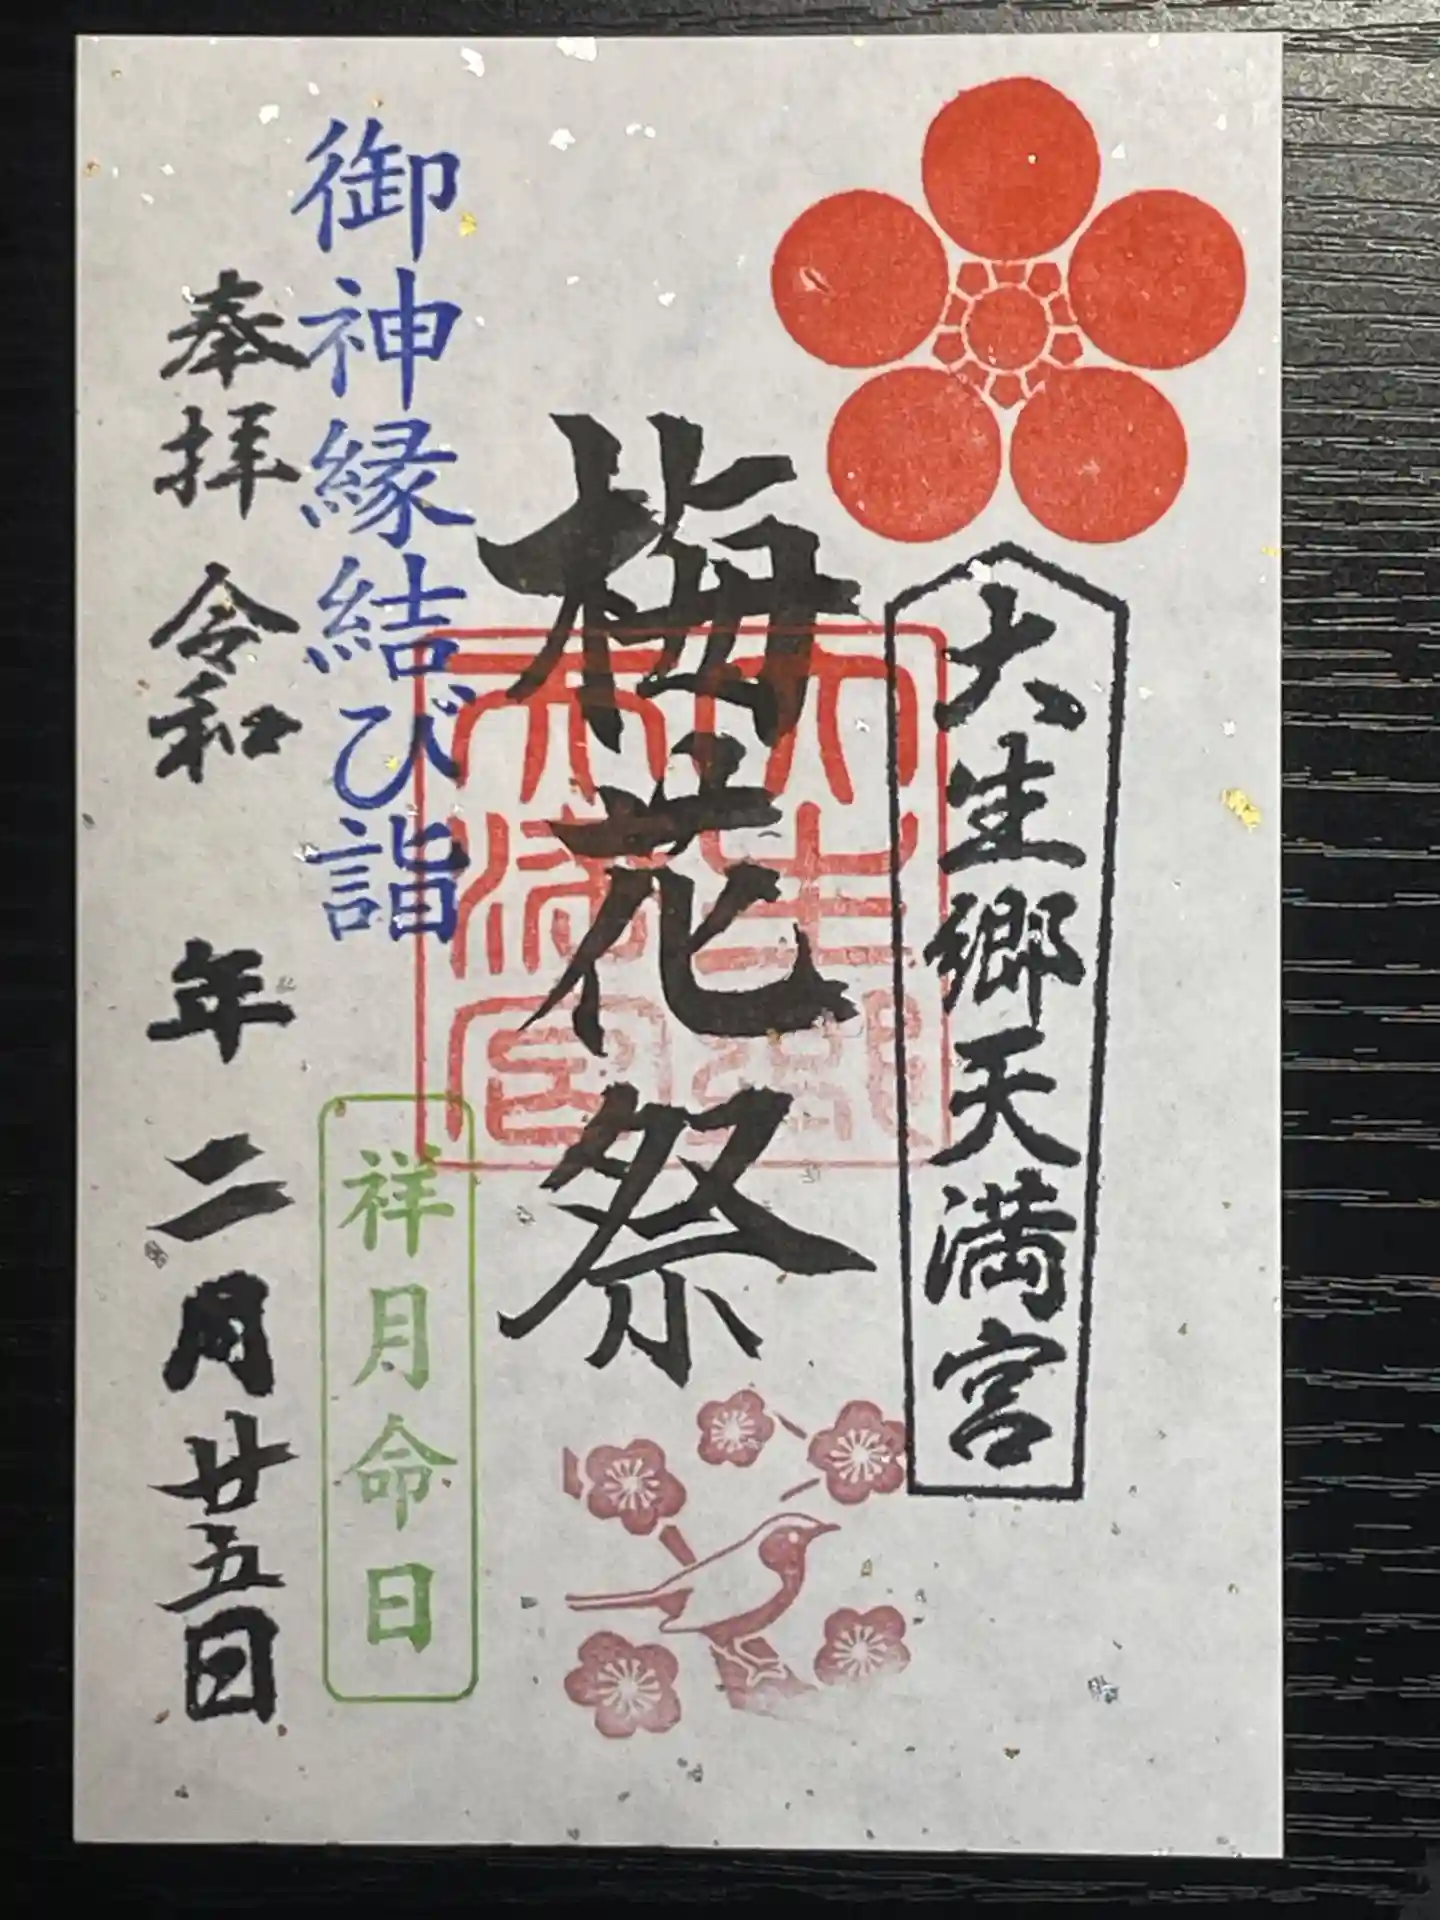 大生郷天満宮
梅花祭
大生郷
天満宮
御神縁結び詣
祥月命日
奉拝 令和 年 二月廿五日